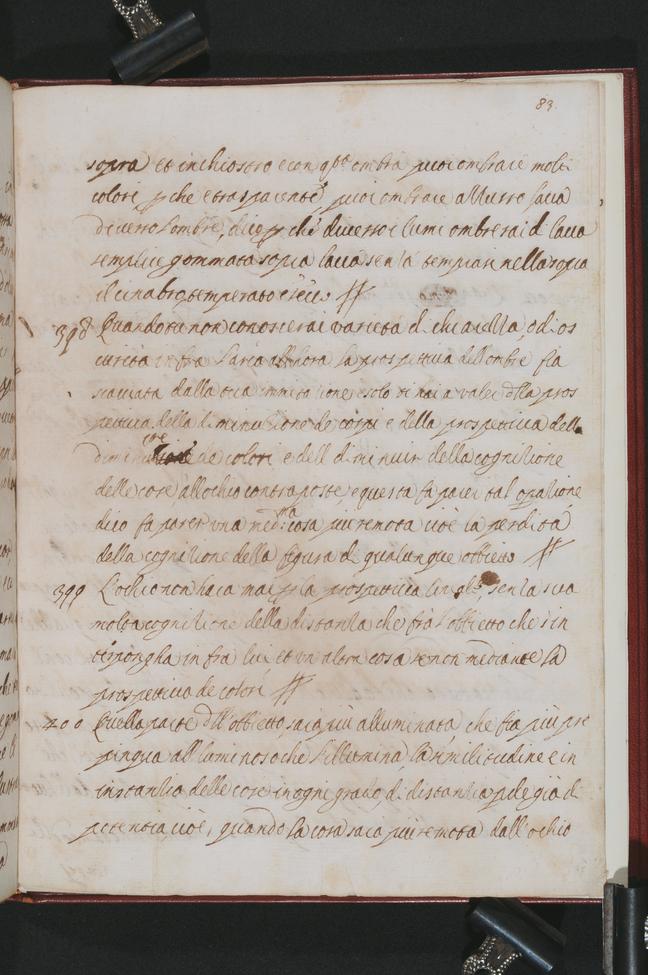 83
sopra et inchiostro e con q.sta ombra puoi ombrare molti
colori p che e trasparente, puoi ombrare allurro faria
diverso l'ombre, dico p ché diverso i lumi ombrerai d lacca
semplice gommata sopra lacca senza tempiar nella sopra
il cinabro temperato e secco
398 Quando tu non conoscierai varieta di chiarezza, o d'os
curita infra l'aria allhora la prospettiva dell ombre fia
scacciata dalla tua immitatione e solo ti hai a valer dlla pros
pettiva della diminutione de corpi e della prospettiva della
diminutione de colori e dell diminuir della cognitione
delle cose all ochio contraposte, e questa fa parer tal oparatione
dico fa parer una med.ma cosa piu remota cioè la perdita
della cognitione della figura di qualunque obbietto
399 L'ochio non havra mai p la prospettiva lineale, senza sua
molta cognitione della distantia che fra l'obbietto che s'in
terpongha infra lui, et un altra cosa se non mediante la
prospettiva de colori
400 Quella parte dll'obbietto sarà più alluminata, che fia più pro
pinqua all luminoso che l'illumina, la similitudine e in
instantia delle cose in ogni grado di distantia p de gradi
potentia cioè, quando la cosa sara piu remota dall'ochio